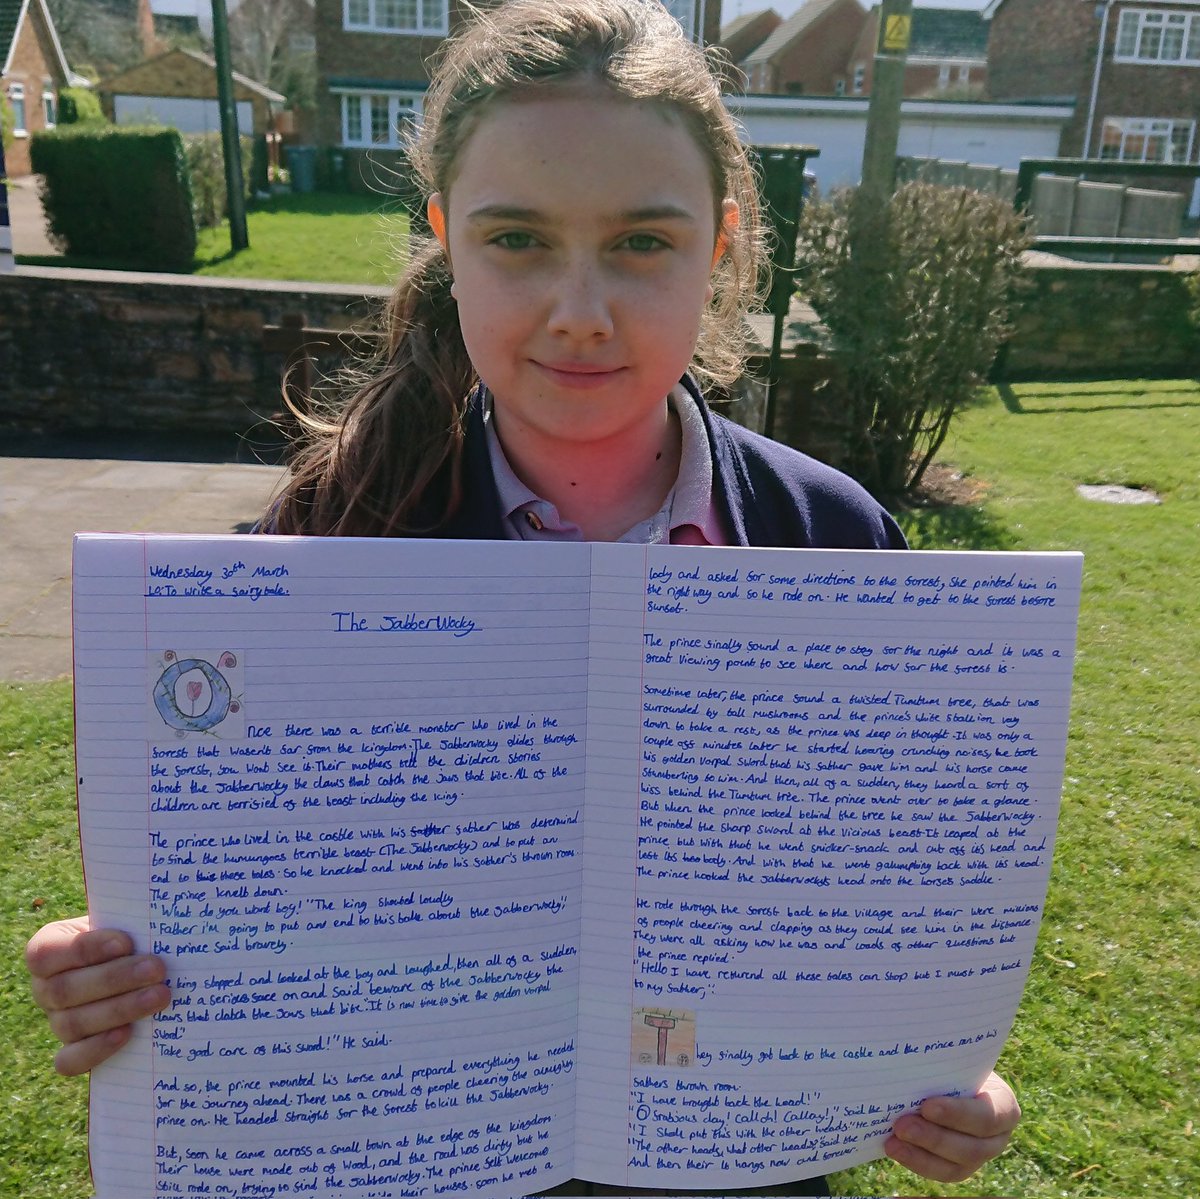 Wednesday 30th March
LO: To write a fairytale.
The Jabberwocky
Once there was a terrible monster who lived in the
forest that wasn't far from the kingdom. The Jabberwocky glides through
the forest, you wont see it. Their mothers tell the children stories
about the Jabberwocky the claws that catch the Jaws that bite. All of the
children are terrified of the beast including the King.
The prince who lived in the castle with his father was determind
to find the humungoes terrible beast (The Jabberwocky) and to put an
end to these tales. So he knocked and went into his father's thrown room.
The prince knelt down.
"What do you want boy!" The King shouted loudly
"Father i'm going to put and end to this tale about the Jabberwocky,"
the prince said bravely.
king stopped and looked at the boy and laughed, then all of a sudden,
put a serious face on and said beware of the Jabberwocky the
claws that clatch the Jaws that bite. "It is now time to give the golden vorpal
Sword"
"Take good care of this sword!" He said.
And so, the prince mounted his horse and prepared everything he needed
for the journey ahead. There was a crowd of people cheering the almighty
prince on. He headed straight for the forest to kill the Jabberwocky.
But, soon he came across a small town at the edge of the kingdom.
Their house were made out of wood, and the road was dirty but he
still rode on, trying to find the Jabberwocky. The prince felt welcome
their houses. Soon he met a
lady and asked for some directions to the forest, She pointed him in
the right way and so he rode on. He wanted to get to the forest before
sunset.
The prince finally found a place to stay for the night and it was a
great viewing point to see where and how far the forest is.
Sometime later, the prince found a twisted Tumtum tree, that was
surrounded by tall mushrooms and the prince's white stallion lay
down to take a rest, as the prince was deep in thought. It was only a
couple off minutes later he started hearing crunching noises, he took
his golden vorpal sword that his father gave him and his horse came
stumberling to him. And then, all of a sudden, they heard a sort of
hiss behind the Tumtum tree. The prince went over to take a glance.
But when the prince looked behind the tree he saw the Jabberwocky.
He pointed the sharp sword at the vicious beast. It leaped at the
prince but with that he went snicker-snack and cut off its head and
left its body. And with that he went galumphing back with its head.
The prince hooked the Jabberwockys head onto the horse's saddle.
He rode through the forest back to the village and their were millions
of people cheering and clapping as they could see him in the distance.
They were all asking how he was and loads of other questions but
the prince replied.
"Hello I have returend all these tales can stop but I must get back
to my father,".
They finally got back to the castle and the prince ran to his
fathers thrown room.
"I have brought back the head!"
"O frabjous day! Calloh! Callay!," said the king
"I shall put this with the other heads" He said
"The other heads, what other heads?" said the prince
And then their it hangs now and forever.